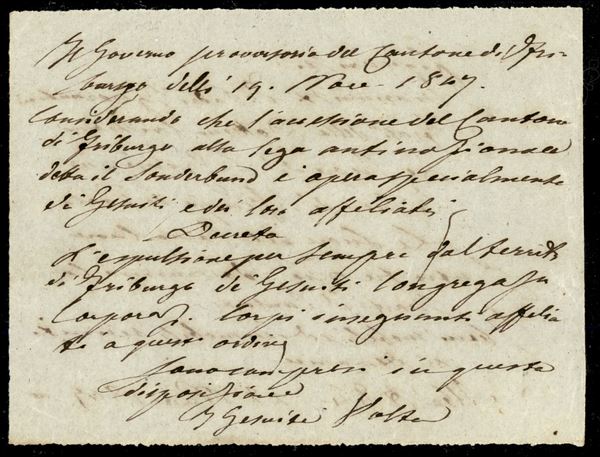 Il Governo provvisorio del Cantone di Fri-
burgo delli 19. Nove 1847.
Considerando che l'accessione del Cantone
di Friburgo alla lega antinazionale
detta il Sonderbund è opera specialmente
di Gesuiti e dei loro affiliati
Decreta
L'espulsione per sempre dal territo
di Friburgo di Gesuiti Congregazi
Corporaz. Corpi insegnanti affilia
ti a questi ordini
sono compresi in questa
disposizione
I Gesuiti